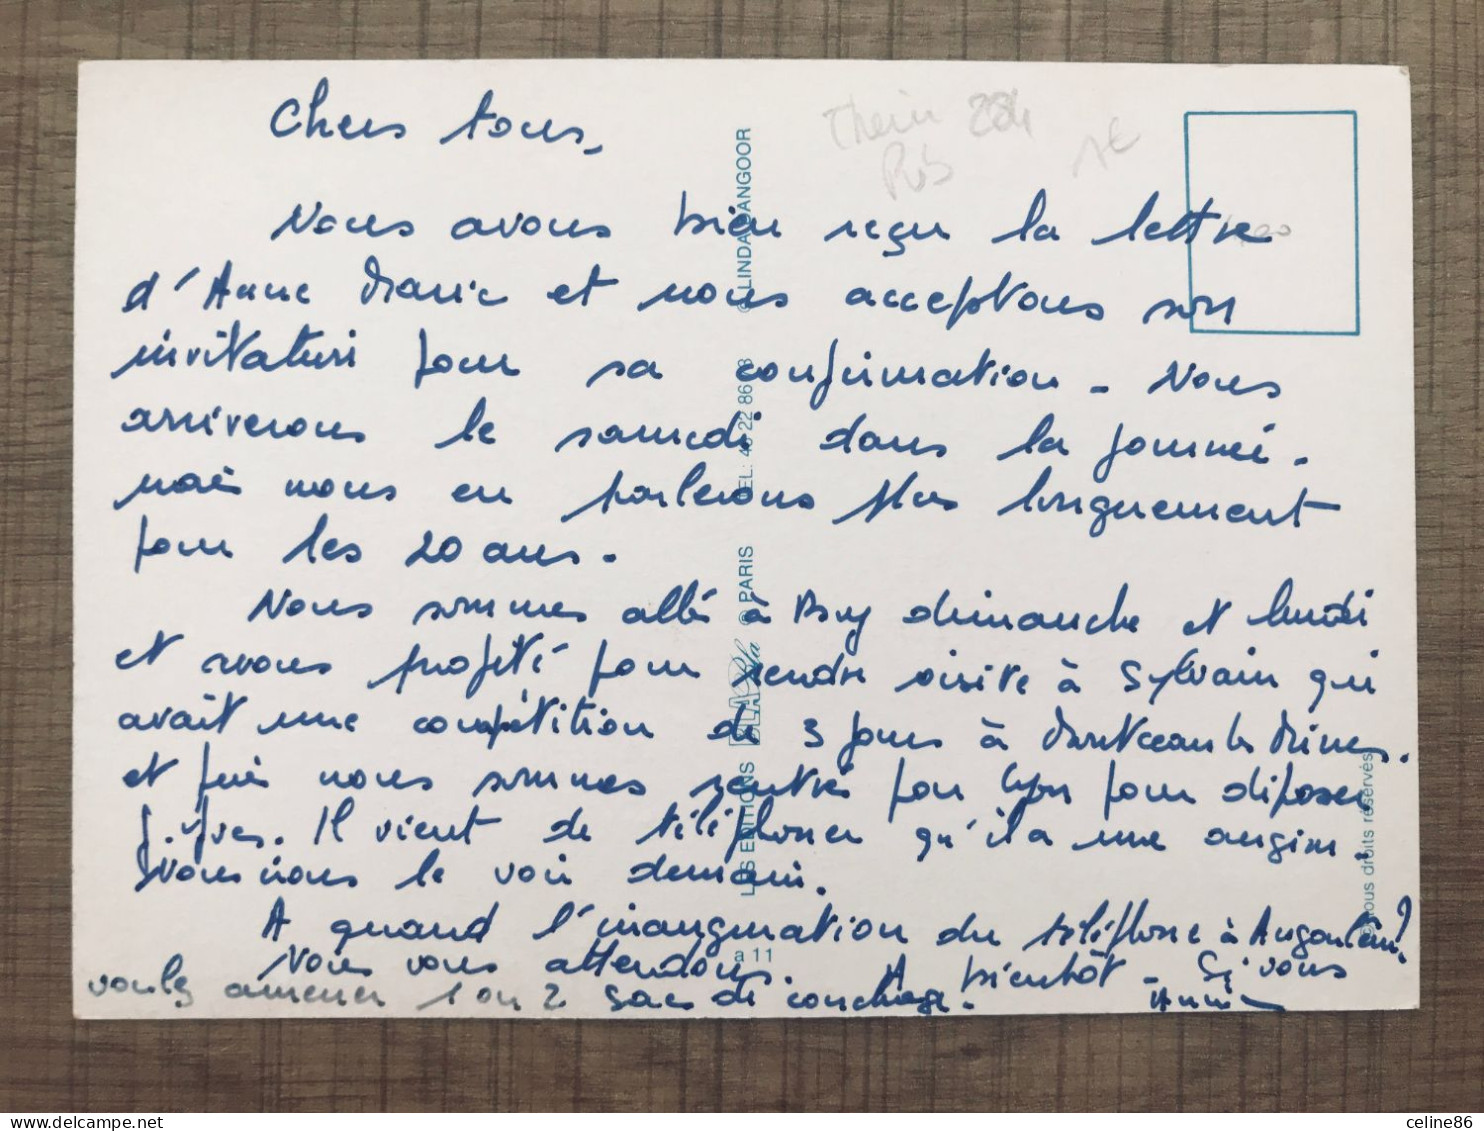 Chers tous,
Nous avons bien reçu la lettre
d'Anne Marie et nous acceptons son
invitation pour sa confirmation - Nous
arriverons le samedi dans la journée.
mais nous en parlerons plus longuement
pour les 20 ans.
Nous sommes allés à Buy dimanche et lundi
et avons profité pour rendre visite à Sylvain qui
avait une compétition de 3 jours à Montceau les Mines.
et puis nous sommes rentrés par Lyon pour déposer
J. Yves. Il vient de téléphoner qu'il a une angine.
Nous irons le voir demain.
A quand l'inauguration du téléphone à Angoulême?
Nous vous attendons. A bientôt - Si vous
voulez amener 1 ou 2 sacs de couchage. Annie
LES EDITIONS
© PARIS
TEL: 43 22 86 83
© LINDA DANGOOR
a 11
© tous droits réservés
284
1€
celine86